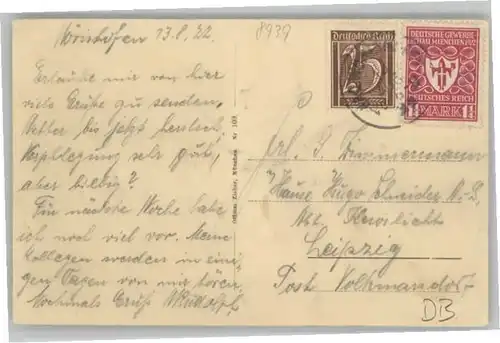 Wörishofen 13.8.22.
8939
Erlaube mir von hier
viele Grüße zu senden.
Wetter bis jetzt herrlich,
Verpflegung sehr gut,
aber billig?
Für nächste Woche habe
ich noch viel vor. Meine
Kollegen werden in eini-
gen Tagen von mir hören.
Nochmals Gruß
München Nr 107
Deutsches Reich
25
DEUTSCHE GEWERBE
SCHAU MUENCHEN 1922
DEUTSCHES REICH
MARK
Frl. G. Zimmermann
Hause Hugo Schneider A.-G.
Abt.
Leipzig
Post Volkmarsdorf
DB